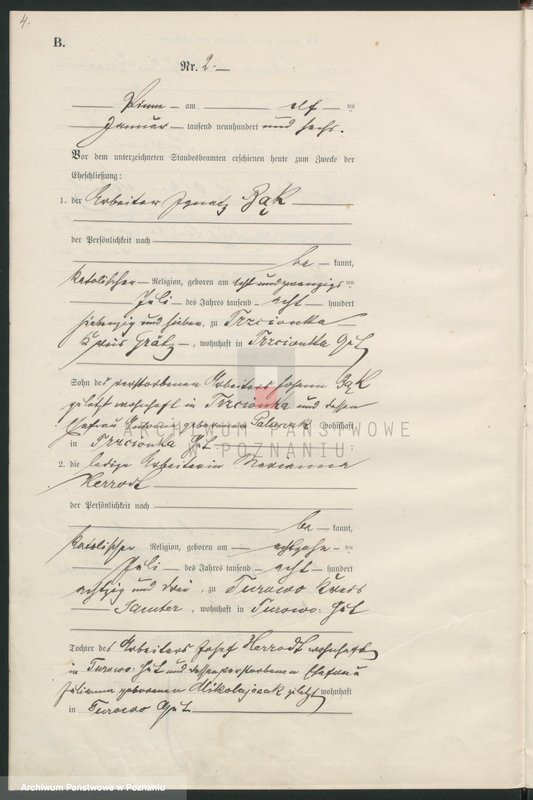 4.
B.
Nr. 2.
Pinne am elf ten
Januar tausend neunhundert und sechs.
Vor dem unterzeichneten Standesbeamten erschienen heute zum Zwecke der
Eheschließung:
1. der Arbeiter Ignatz Bąk
der Persönlichkeit nach
be kannt,
katolischer Religion, geboren am acht und zwanzigs ten
Juli des Jahres tausend acht hundert
siebenzig und sieben, zu Trzcionka
Kreis Grätz, wohnhaft in Trzcionka Gut
Sohn des verstorbenen Arbeiters Johann Bąk
zuletzt wohnhaft in Trzcionka und dessen
Ehefrau geborenen wohnhaft
ARCHIWUM PAŃSTWOWE
W POZNANIU
in Trzcionka Gut
2. die ledige Arbeiterin Marianna
Herrodt
der Persönlichkeit nach
be kannt,
katolischer Religion, geboren am achtzehn ten
Juli des Jahres tausend acht hundert
achtzig und drei, zu Turowo Kreis
Samter, wohnhaft in Turowo Gut
Tochter des Arbeiters Josef Herrodt wohnhaft
in Turowo Gut und dessen verstorbenen Ehefrau
Julianna geborenen Mikolajczak zuletzt wohnhaft
in Turowo Gut
Archiwum Państwowe w Poznaniu